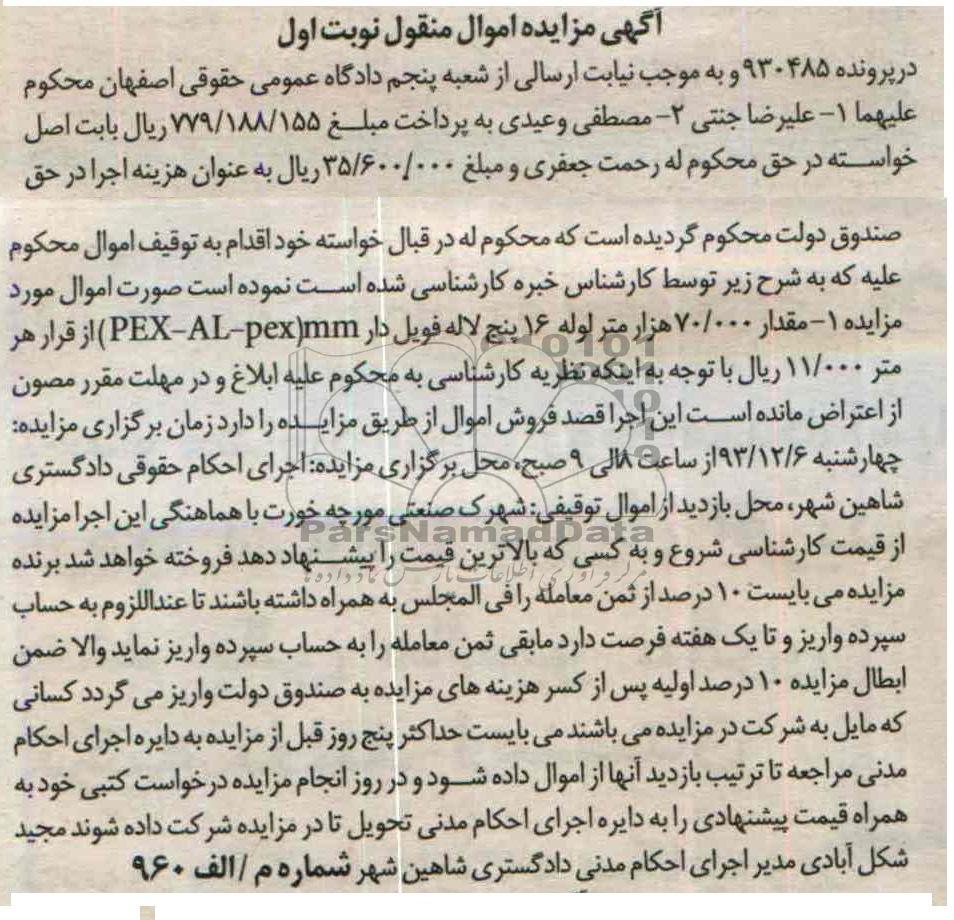 آگهی مزایده اموال منقول نوبت اول
درپرونده ۹۳۰۴۸۵ و به موجب نیابت ارسالی از شعبه پنجم دادگاه عمومی حقوقی اصفهان محکوم
علیهما ۱- علیرضا جنتی ۲- مصطفی وعیدی به پرداخت مبلغ ۷۷۹/۱۸۸/۱۵۵ ریال بابت اصل
خواسته در حق محکوم له رحمت جعفری و مبلغ ۳۵/۶۰۰/۰۰۰ ریال به عنوان هزینه اجرا در حق
صندوق دولت محکوم گردیده است که محکوم له در قبال خواسته خود اقدام به توقیف اموال محکوم
علیه که به شرح زیر توسط کارشناس خبره کارشناسی شده است نموده است صورت اموال مورد
مزایده ۱- مقدار ۷۰/۰۰۰ هزار متر لوله ۱۶ پنج لاله فویل دار PEX-AL-pex)mm) از قرار هر
متر ۱۱/۰۰۰ ریال با توجه به اینکه نظریه کارشناسی به محکوم علیه ابلاغ و در مهلت مقرر مصون
از اعتراض مانده است این اجرا قصد فروش اموال از طریق مزایده را دارد زمان برگزاری مزایده:
چهارشنبه ۹۳/۱۲/۶ از ساعت ۸ الی ۹ صبح، محل برگزاری مزایده: اجرای احکام حقوقی دادگستری
شاهین شهر، محل بازدید از اموال توقیفی: شهرک صنعتی مورچه خورت با هماهنگی این اجرا مزایده
ParsNamadData
از قیمت کارشناسی شروع و به کسی که بالاترین قیمت را پیشنهاد دهد فروخته خواهد شد برنده
مزایده می بایست ۱۰ درصد از ثمن معامله را فی المجلس به همراه داشته باشند تا عنداللزوم به حساب
سپرده واریز و تا یک هفته فرصت دارد مابقی ثمن معامله را به حساب سپرده واریز نماید والا ضمن
ابطال مزایده ۱۰ درصد اولیه پس از کسر هزینه های مزایده به صندوق دولت واریز می گردد کسانی
که مایل به شرکت در مزایده می باشند می بایست حداکثر پنج روز قبل از مزایده به دایره اجرای احکام
مدنی مراجعه تا ترتیب بازدید آنها از اموال داده شود و در روز انجام مزایده درخواست کتبی خود به
همراه قیمت پیشنهادی را به دایره اجرای احکام مدنی تحویل تا در مزایده شرکت داده شوند مجید
شکل آبادی مدیر اجرای احکام مدنی دادگستری شاهین شهر شماره م /الف ۹۶۰